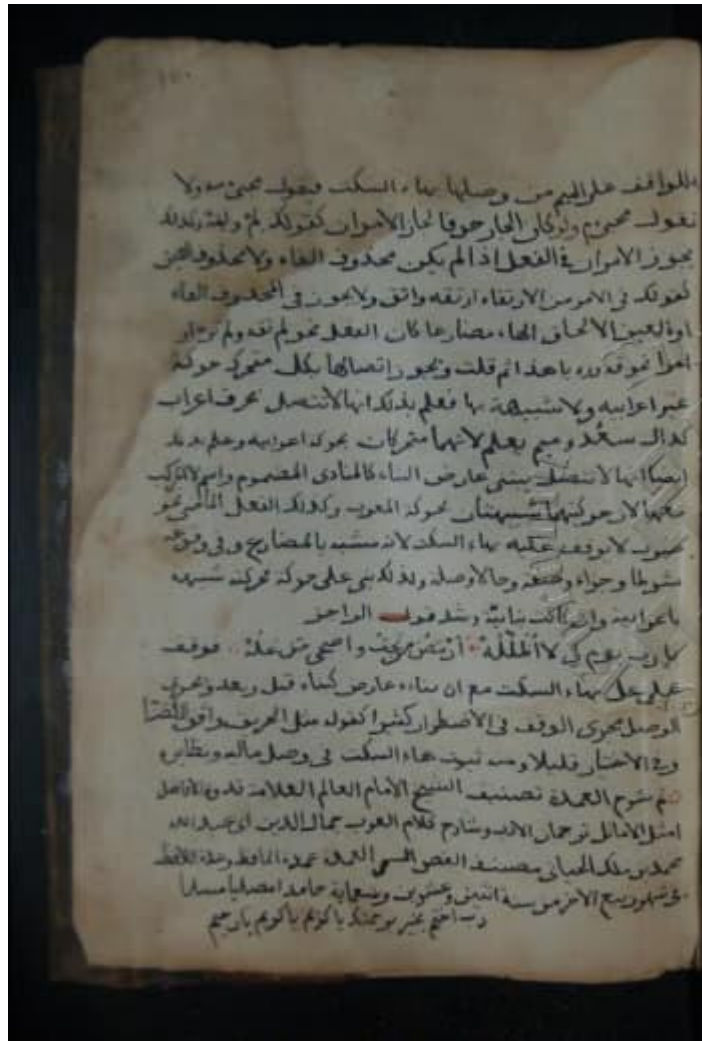 للواقف على الميم من وصلها بهاء السكت فيقول مجيء مه ولا
تقول مجيء م ولو كان الجار حرفا لجاز الامران كقولك لم ولمه وكذلك
يجوز الامران في الفعل اذا لم يكن محذوف الفاء ولا محذوف العين
كقولك في الامر من الارتقاء ارتقه وارتق ولا يجوز في المحذوف الفاء
او العين الا لحاق الهاء مضارعا كان الفعل نحو لم تقه ولم تره او
امرا نحو قه وره يا هذا ثم قلت ويجوز اتصالها بكل متحرك حركة
غير اعرابية ولا شبيهة بها فعلم بذلك انها لا تتصل بحرف اعراب
كدال سعد وميم يعلم لانهما متحركان بحركة اعرابية وعلم بذلك
ايضا انها لا تتصل بمبني عارض البناء كالمنادى المضموم واسم لا المركب
معها لان حركتهما شبيهتان بحركة المعرب وكذلك الفعل الماضي نحو
ضرب لا يوقف عليه بهاء السكت لانه مشبه بالمضارع في وقوعه
شرطا وجزاء وصفة وحالا وصلة ولذلك بني على حركة فحركته شبيهة
باعرابية وان كانت بنائية وشذ قول الراجز
يا رب يوم لي لا اظلله ارمض من تحت واضحى من عله فوقف
على عل بهاء السكت مع ان بناءه عارض كبناء قبل وبعد ويجرى
الوصل مجرى الوقف في الاضطرار كثيرا كقوله مثل الحريق وافق القصبا
وفي الاختيار قليلا ومنه ثبوت هاء السكت في وصل ماليه ونظايره
تم شرح العمدة تصنيف الشيخ الامام العالم العلامة قدوة الافاضل
امثل الاماثل ترجمان الادب وشارح كلام العرب جمال الدين ابي عبد الله
محمد بن ملك الجياني مصنف المسمى العمدة عمدة الحافظ وعدة اللافظ
في شهر ربيع الاخر من سنة اثنين وعشرين وتسعماية حامدا مصليا مسلما
رب اختم بخير بمنك يا كريم يا كريم يا رحيم